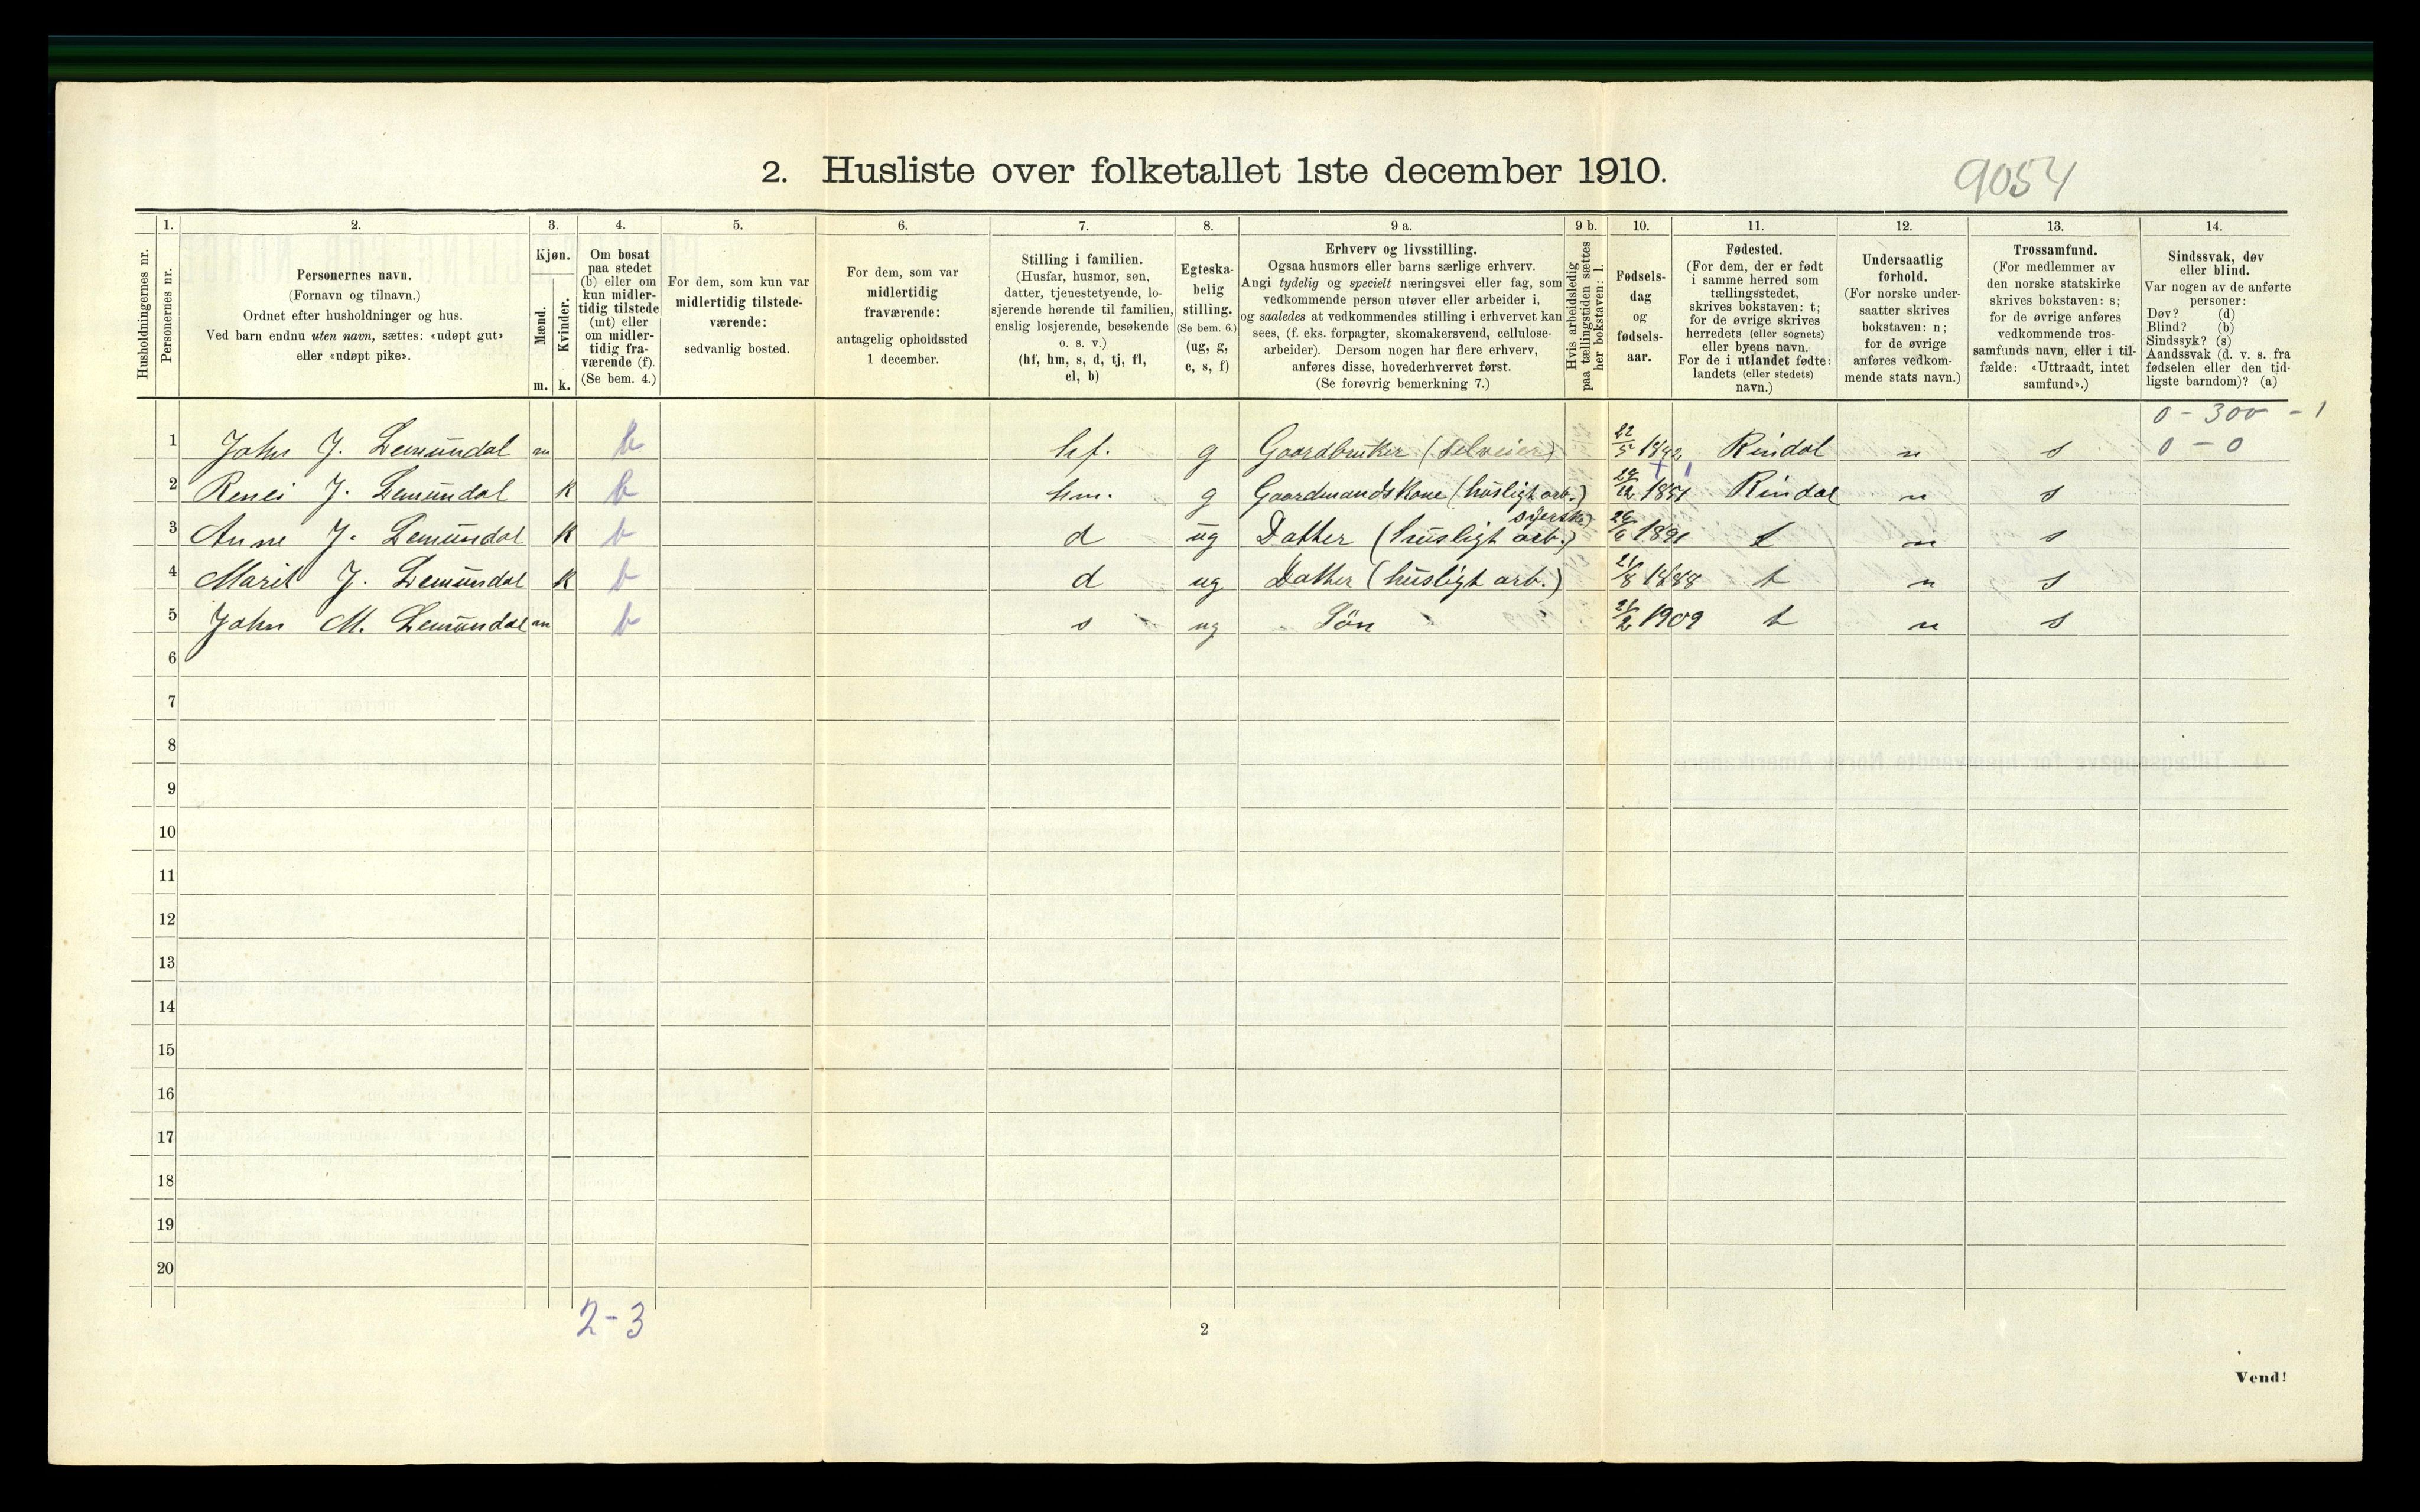 2. Husliste over folketallet 1ste december 1910.
9054
Husholdningernes nr.
1.
Personernes nr.
2.
Personernes navn.
(Fornavn og tilnavn.)
Ordnet efter husholdninger og hus.
Ved barn endnu uten navn, sættes: «udøpt gut»
eller «udøpt pike».
3.
Kjøn.
Mænd.
Kvinder.
m. k.
4.
Om bosat
paa stedet
(b) eller om
kun midler-
tidig tilstede
(mt) eller
om midler-
tidig fra-
værende (f).
(Se bem. 4.)
5.
For dem, som kun var
midlertidig tilstede-
værende:
sedvanlig bosted.
6.
For dem, som var
midlertidig
fraværende:
antagelig opholdssted
1 december.
7.
Stilling i familien.
(Husfar, husmor, søn,
datter, tjenestetyende, lo-
sjerende hørende til familien,
enslig losjerende, besøkende
o. s. v.)
(hf, hm, s, d, tj, fl,
el, b)
8.
Egteska-
belig
stilling.
(Se bem. 6.)
(ug, g,
e, s, f)
9 a.
Erhverv og livsstilling.
Ogsaa husmors eller barns særlige erhverv.
Angi tydelig og specielt næringsvei eller fag, som
vedkommende person utøver eller arbeider i,
og saaledes at vedkommendes stilling i erhvervet kan
sees, (f. eks. forpagter, skomakersvend, cellulose-
arbeider). Dersom nogen har flere erhverv,
anføres disse, hovederhvervet først.
(Se forøvrig bemerkning 7.)
9 b.
Hvis arbeidsledig
paa tællingstiden sættes
her bokstaven: l.
10.
Fødsels-
dag
og
fødsels-
aar.
11.
Fødested.
(For dem, der er født
i samme herred som
tællingsstedet,
skrives bokstaven: t;
for de øvrige skrives
herredets (eller sognets)
eller byens navn.
For de i utlandet fødte:
landets (eller stedets)
navn.)
12.
Undersaatlig
forhold.
(For norske under-
saatter skrives
bokstaven: n;
for de øvrige
anføres vedkom-
mende stats navn.)
13.
Trossamfund.
(For medlemmer av
den norske statskirke
skrives bokstaven: s;
for de øvrige anføres
vedkommende tros-
samfunds navn, eller i til-
fælde: «Uttraadt, intet
samfund».)
14.
Sindssvak, døv
eller blind.
Var nogen av de anførte
personer:
Døv? (d)
Blind? (b)
Sindssyk? (s)
Aandssvak (d. v. s. fra
fødselen eller den tid-
ligste barndom)? (a)
0 - 300 - 1
1 John J. Lemundal m b hf. g Gaardbruker (selveier) 22/5 1842 Rindal n s 0 - 0
2 J. Lemundal k b hm. g Gaardmandskone (husligt arb.) 12 1851 Rindal n s
syerske)
3 Anne J. Lemundal k b d ug Datter (husligt arb.) 1891 t n s
4 Marit J. Lemundal k b d ug Datter (husligt arb.) 21/8 1888 t n s
5 John M. Lemundal m b s ug Sön 21/2 1909 t n s
6
7
8
9
10
11
12
13
14
15
16
17
18
19
20
2-3
2
Vend!